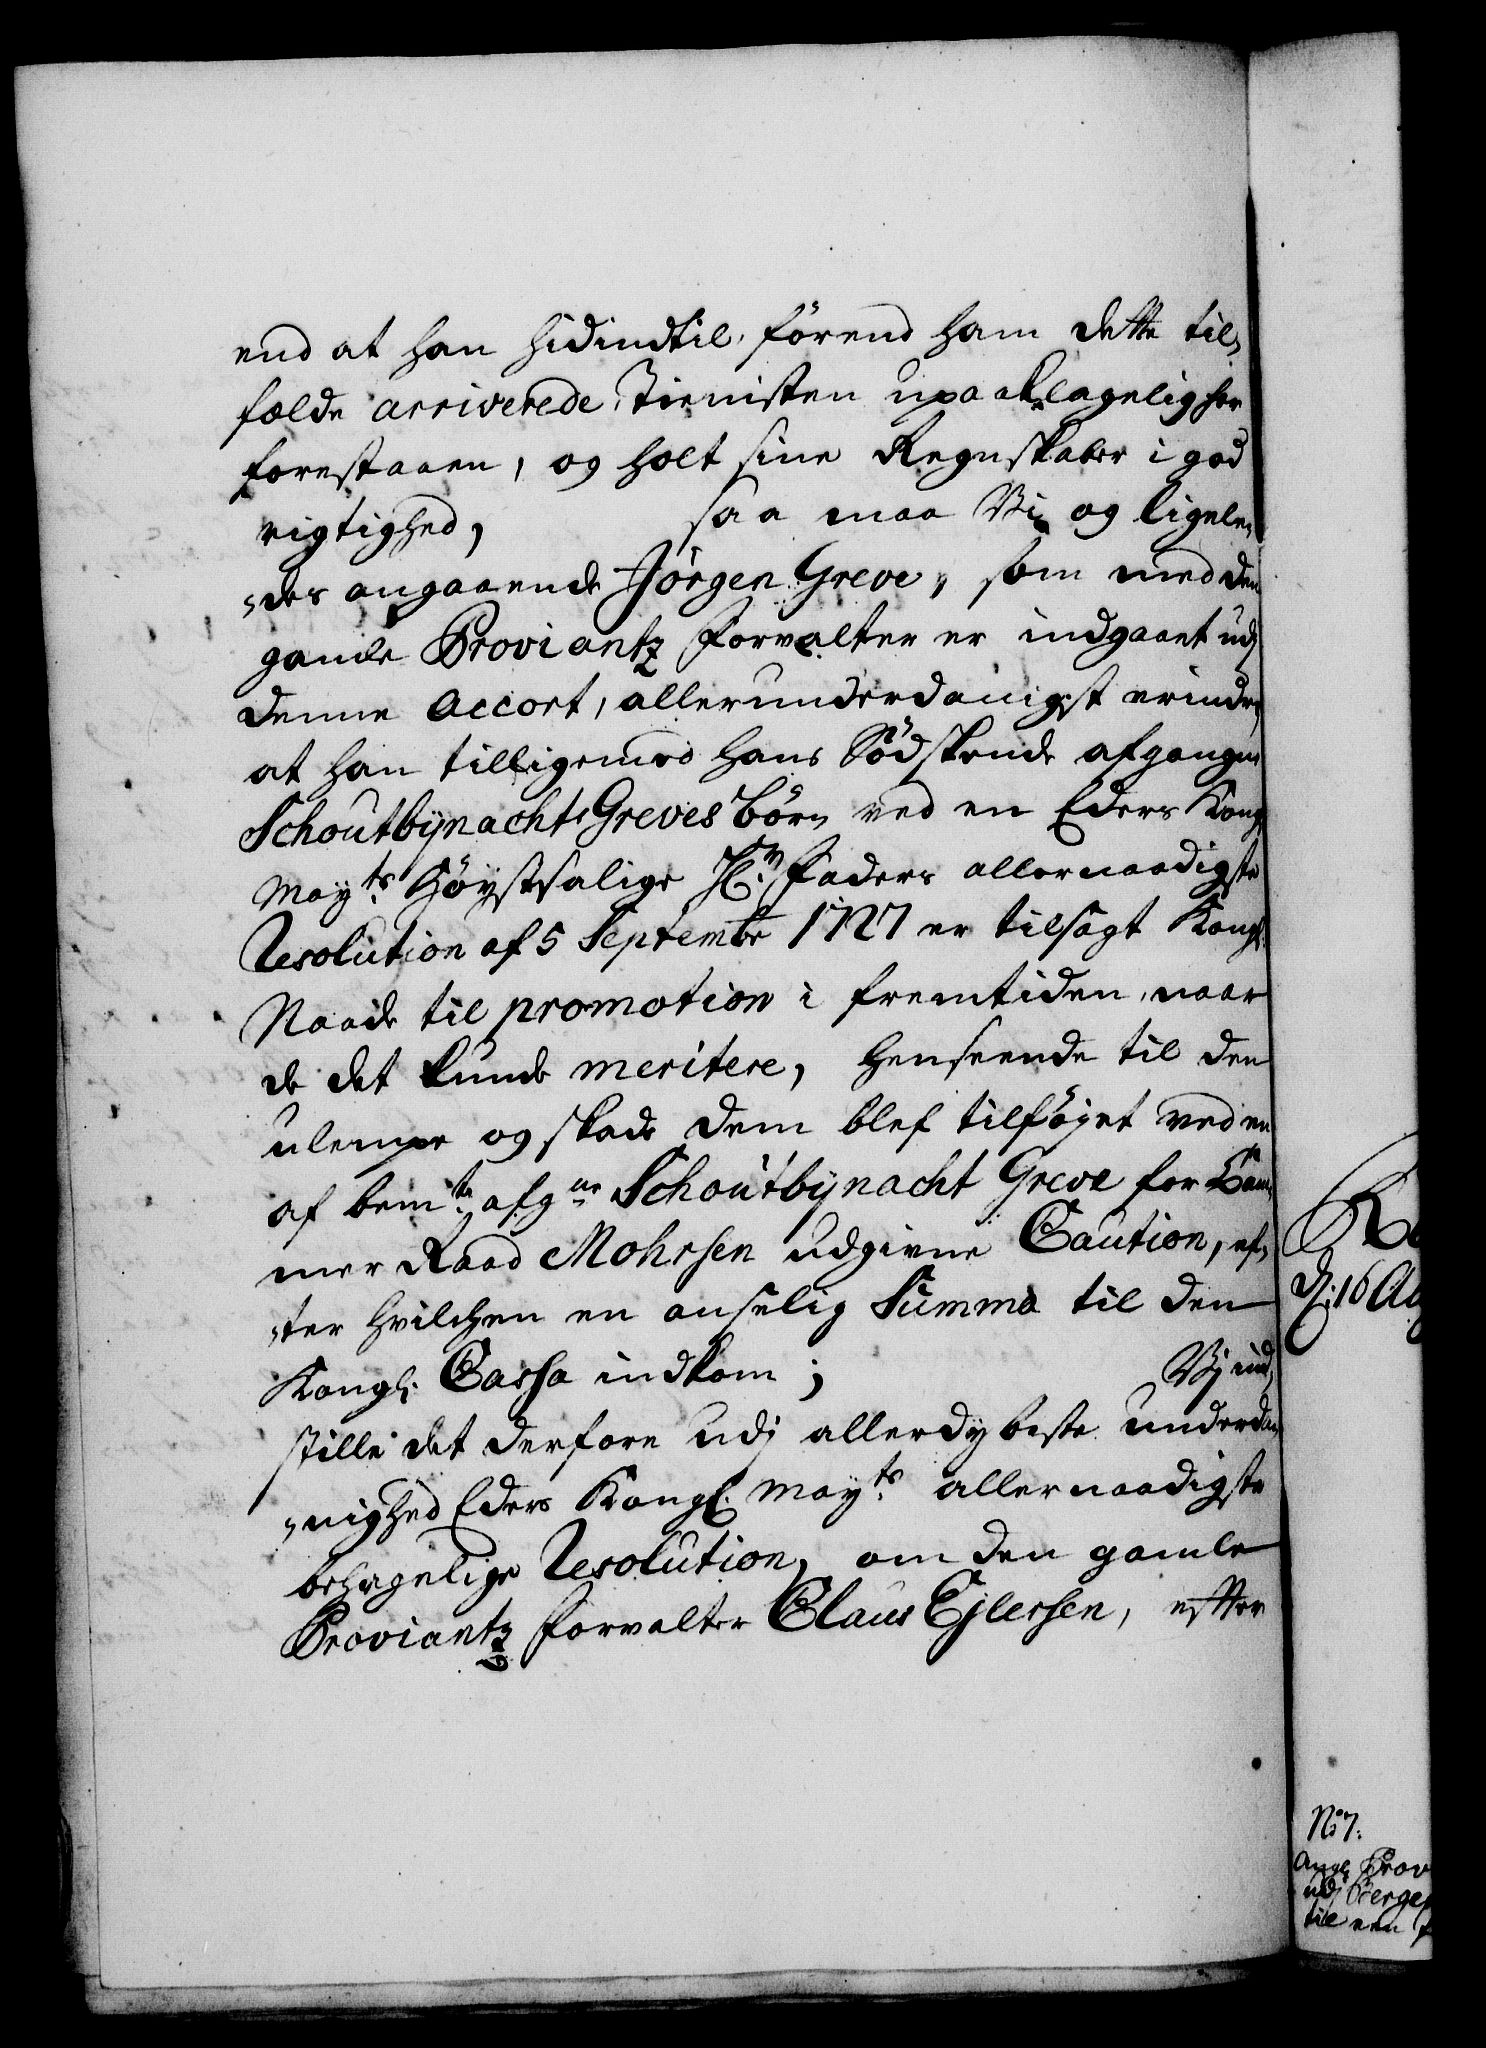 end at han hidindtil, förend ham dette til,
fælde arriverede, Tienisten upaaklagelig har
forestaaen, og holt sine Regnskaber i god
rigtighed, saa maa Vi og ligele,
,des angaaende Jörgen Greve, som med den
gamle Proviantz forvalter er indgaaet udj
denne accort, allerunderdanigst erindre,
at han tilligemed hans Södskende afgangne
Schoutbynachts Greves börn ved en Eders Kong
Mayts Höystsalige Hr. Faders allernaadigste
Resolution af 5 Septembr 1727 er tilsagt Kongl.
Naade til promotion i fremtiden, naar
de det kunde meritere, henseende til den
ulempe og skade dem blef tilföjet ved en
af bemte afgne Schoutbynacht Greve for Kam,
mer Raad Mohrsen udgivne Caution, ef,
,ter hvilchen en anselig Summa til den
Kongl: Cassa indkom; Vj ind,
stille det derfore udj allerdybeste underda,
,nighed Eders Kongl. Mayts allernaadigste
behagelige Resolution, om den gamle
Proviantz forvalter Claus Ejlersen, efter
d: 16 Aug
No 7.
Angl. Prov
udj Bergen
till een